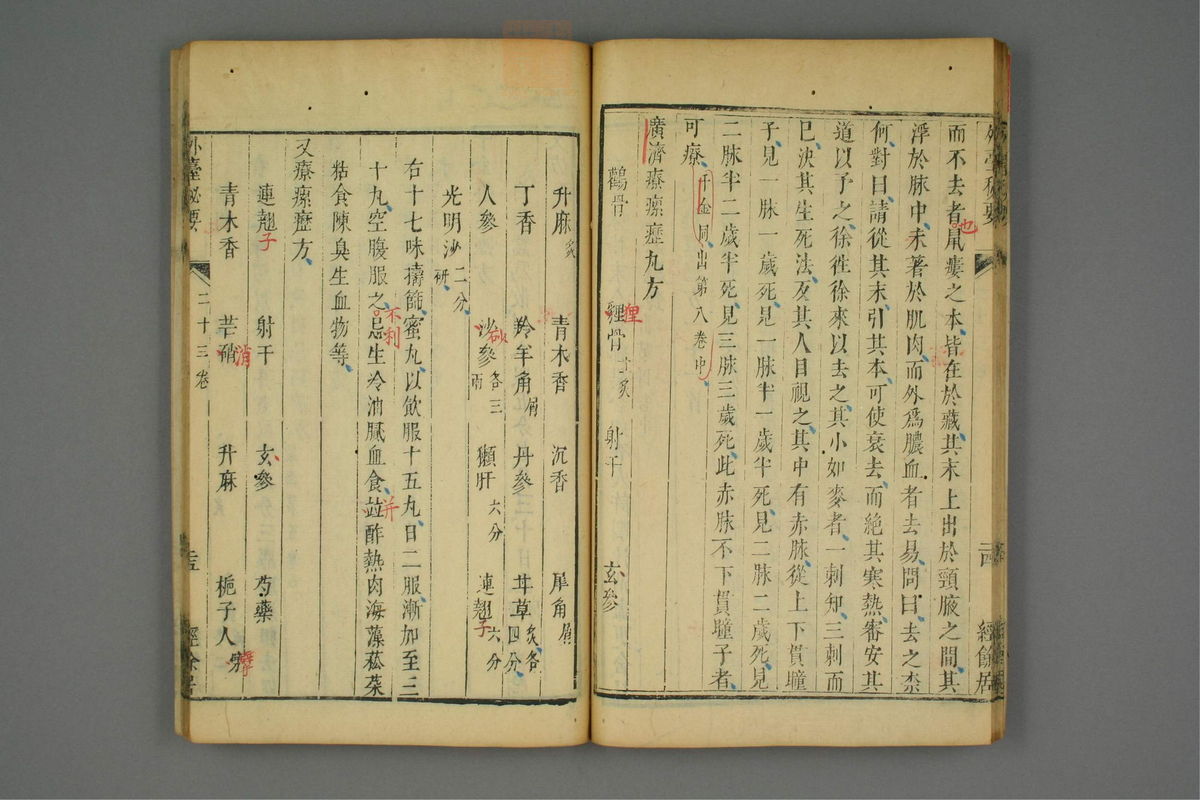 外臺秘要
而不去者鼠瘻之本皆在於藏其末上出於頸腋之間其
也
浮於脉中未著於肌肉而外爲膿血者去易問曰去之柰
何對曰請從其末引其本可使衰去而絶其寒熱審安其
道以予之徐徃徐來以去之其小如麥者一刺知三刺而
已決其生死法反其人目視之其中有赤脉從上下貫瞳
子見一脉一歲死見一脉半一歲半死見二脉二歲死見
二脉半二歲半死見三脉三歲死此赤脉不下貫瞳子者
可療千金同出第八卷中
廣濟療瘰癧丸方
鸛骨 貍骨炙 射干 玄參
狸
二四 經餘居
升麻炙 青木香 沉香 犀角屑
丁香 羚羊角屑 丹參 甘草炙各四分
人參 沙參各三兩 獺肝六分 連翹六分
砂
子
光明沙二分研
右十七味擣篩蜜丸以飲服十五丸日二服漸加至三
十九空腹服之忌生冷油膩血食蒜酢熱肉海藻菘菜
不利
并
粘食陳臭生血物等
又療瘰癧方
連翹 射干 玄參 芍藥
子
青木香 芒硝 升麻 梔子人
消
擘
外臺秘要 二十三卷 二五 經餘居